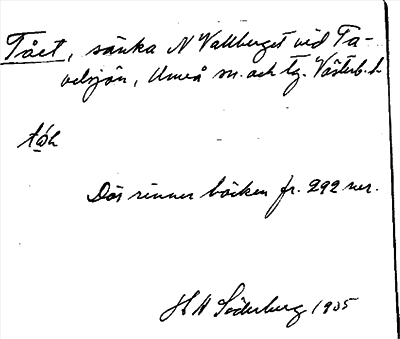 Tået, sänka N Vallberget vid Ta-
velsjön, Umeå sn. och tg. Västerb. l.
Där rinner bäcken fr. 292 ner.
H A Söderberg 1935